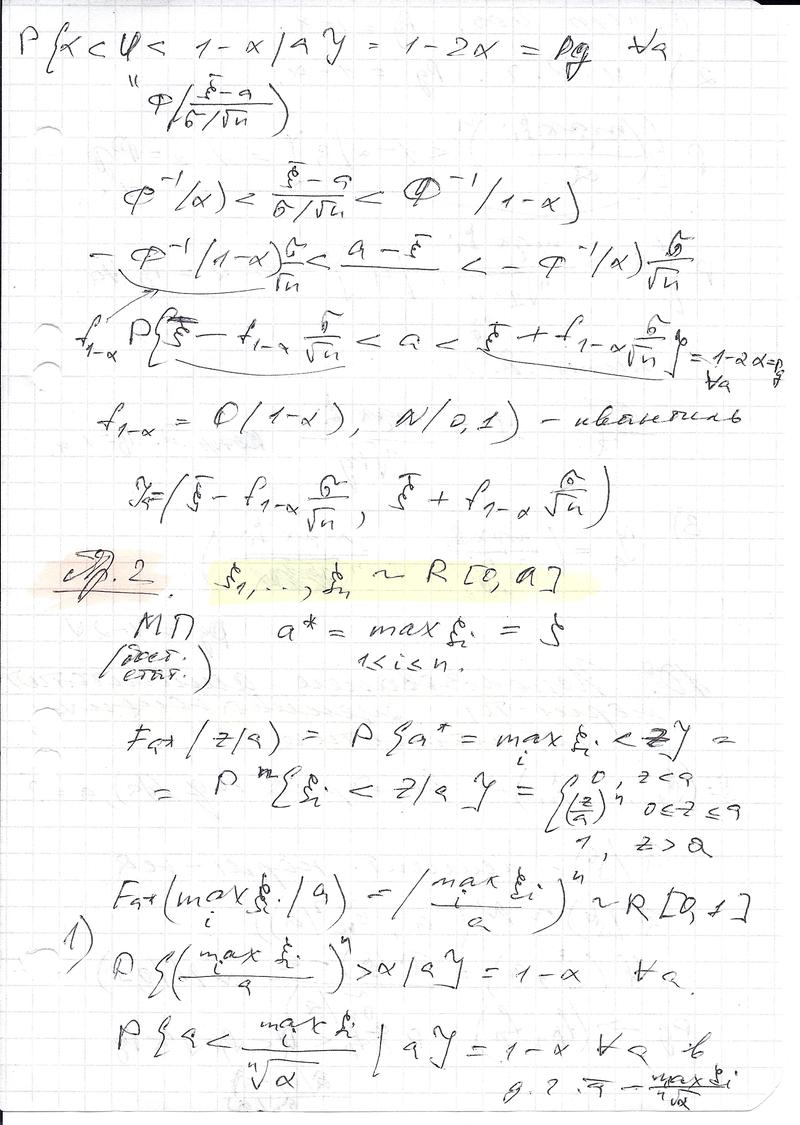 P{α < φ < 1-α / a} = 1-2α = Pg ∀a
" Φ((ξ̄-a)/(σ/√n))
Φ⁻¹(α) < (ξ̄-a)/(σ/√n) < Φ⁻¹(1-α)
- Φ⁻¹(1-α) σ/√n < a-ξ̄ < - Φ⁻¹(α) σ/√n
f₁₋α P{ξ̄ - f₁₋α σ/√n < a < ξ̄ + f₁₋α σ/√n} = 1-2α = Pg ∀a
f₁₋α = Q(1-α), N(0,1) - квантиль
Jₐ = (ξ̄ - f₁₋α σ/√n, ξ̄ + f₁₋α σ/√n)
Пр. 2. ξ₁, ..., ξn ~ R[0, a]
МП a* = max ξi = ζ
(дост. стат.) 1≤i≤n.
Fa*(z/a) = P{a* = max i ξi < z} =
= Pⁿ{ξi < z/a} = { 0, z<a
(z/a)ⁿ 0≤z≤a
1, z>a
Fa*(max i ξi / a) = (max i ξi / a)ⁿ ~ R[0, 1]
1) P{(max i ξi / a)ⁿ > α / a} = 1-α ∀a.
P{a < max i ξi / ⁿ√α / a} = 1-α ∀a в
д. г. ā - max ξi / ⁿ√α